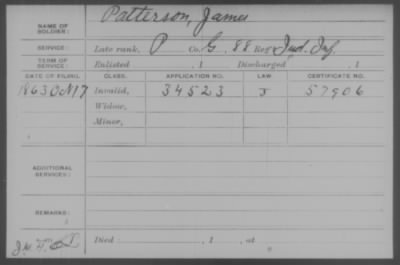 NAME OF SOLDIER: Patterson, James
SERVICE: Late rank, P Co. G, 88 Reg't Ind. Inf.
TERM OF SERVICE: Enlisted , 1 Discharged , 1
DATE OF FILING. CLASS. APPLICATION NO. LAW CERTIFICATE NO.
1863 Oct 17 Invalid, 34523 J 57906
Widow,
Minor,
ADDITIONAL SERVICES:
REMARKS:
Died , 1 , at